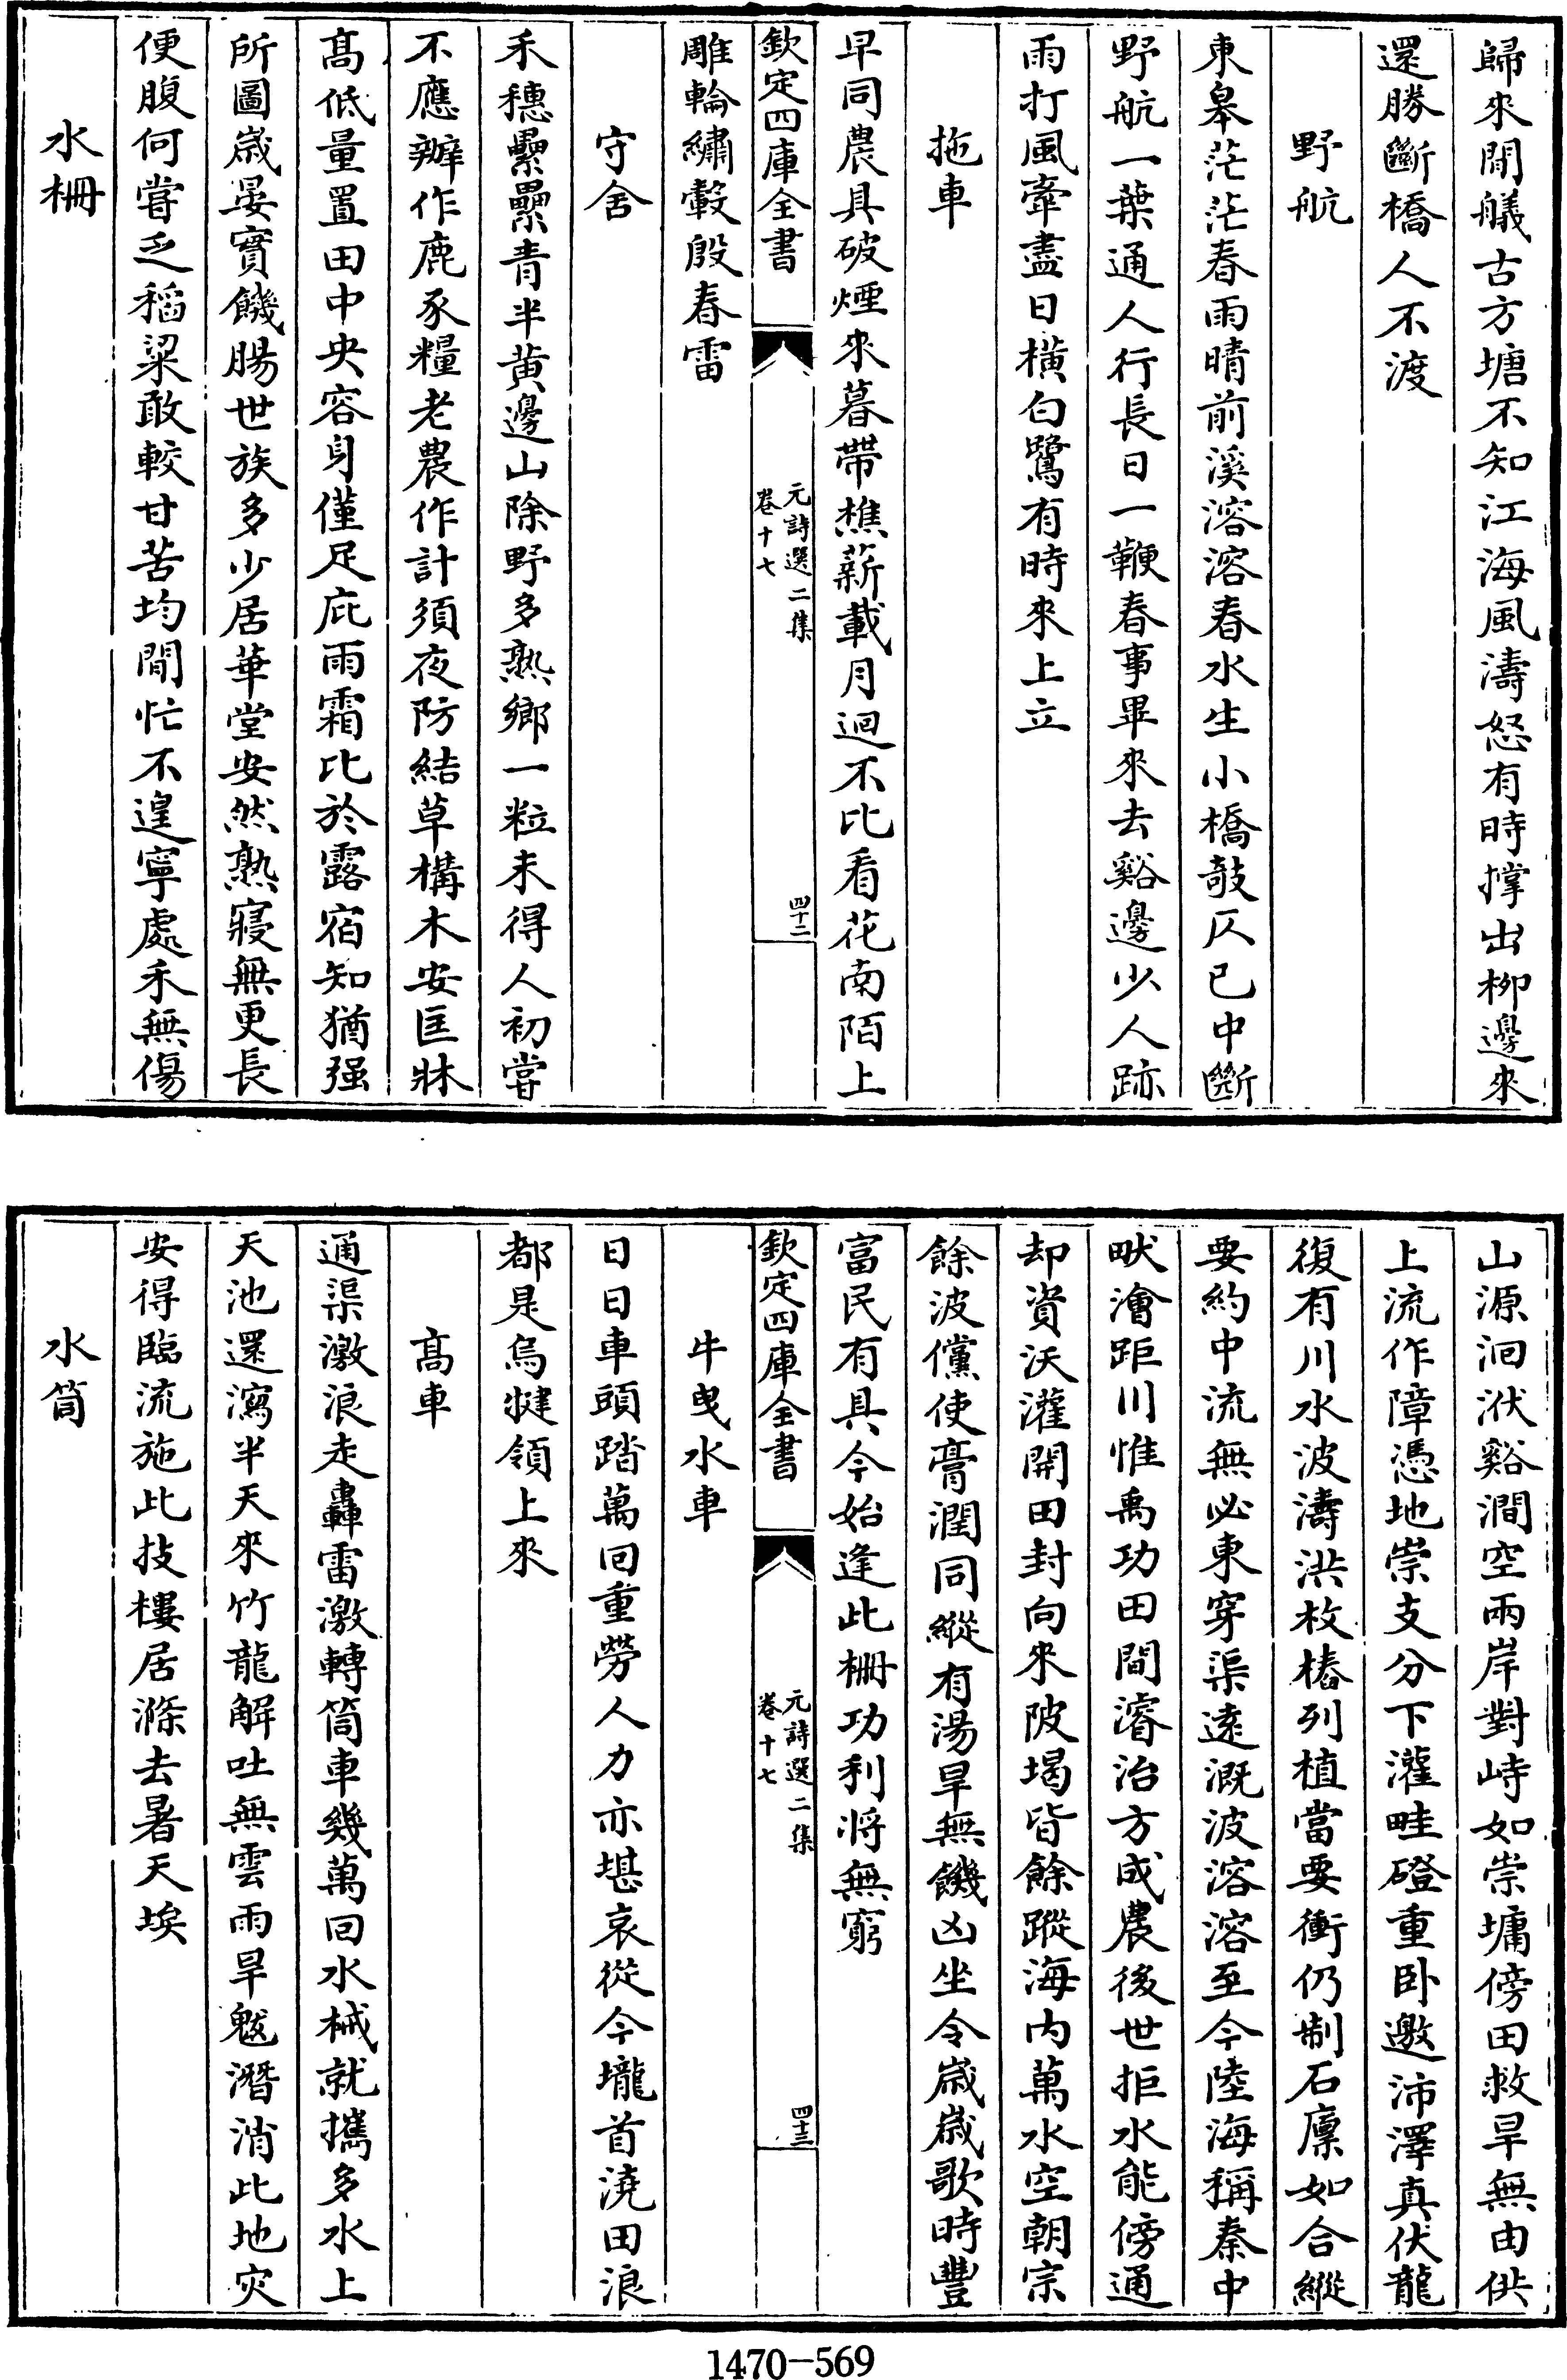 歸來閒艤古方塘不知江海風濤怒有時撐出柳邊來
還勝斷橋人不渡
野航
東皋茫茫春雨晴前溪溶溶春水生小橋敧仄已中斷
野航一葉通人行長日一鞭春事畢來去谿邊少人跡
雨打風牽盡日橫白鷺有時來上立
拖車
早同農具破煙來暮帶樵薪載月迴不比看花南陌上
欽定四庫全書
元詩選二集
卷十七
四十二
雕輪繡轂殷春雷
守舍
禾穗纍纍青半黄邊山除野多熟鄉一粒未得人初嘗
不應辦作鹿豕糧老農作計須夜防結草構木安匡牀
髙低量置田中央容身僅足庇雨霜比於露宿知猶强
所圖嵗晏實饑腸世族多少居華堂安然熟寢無更長
便腹何嘗乏稻粱敢較甘苦均閒忙不遑寧處禾無傷
水柵
山源洄洑谿澗空兩岸對峙如崇墉傍田救旱無由供
上流作障憑地崇支分下灌畦磴重卧邀沛澤真伏龍
復有川水波濤洪枚樁列植當要衝仍制石廩如合縱
要約中流無必東穿渠遠溉波溶溶至今陸海稱秦中
畎澮距川惟禹功田間濬治方成農後世拒水能傍通
却資沃灌開田封向來陂堨皆餘蹤海内萬水空朝宗
餘波儻使膏潤同縱有湯旱無饑凶坐令嵗嵗歌時豐
富民有具今始逢此柵功利将無窮
欽定四庫全書
元詩選二集
卷十七
四十三
牛曳水車
日日車頭踏萬回重勞人力亦堪哀從今壠首澆田浪
都是烏犍領上來
髙車
通渠激浪走轟雷激轉筒車幾萬回水械就攜多水上
天池還瀉半天來竹龍解吐無雲雨旱魃潛消此地灾
安得臨流施此技樓居滌去暑天埃
水筒
1470-569